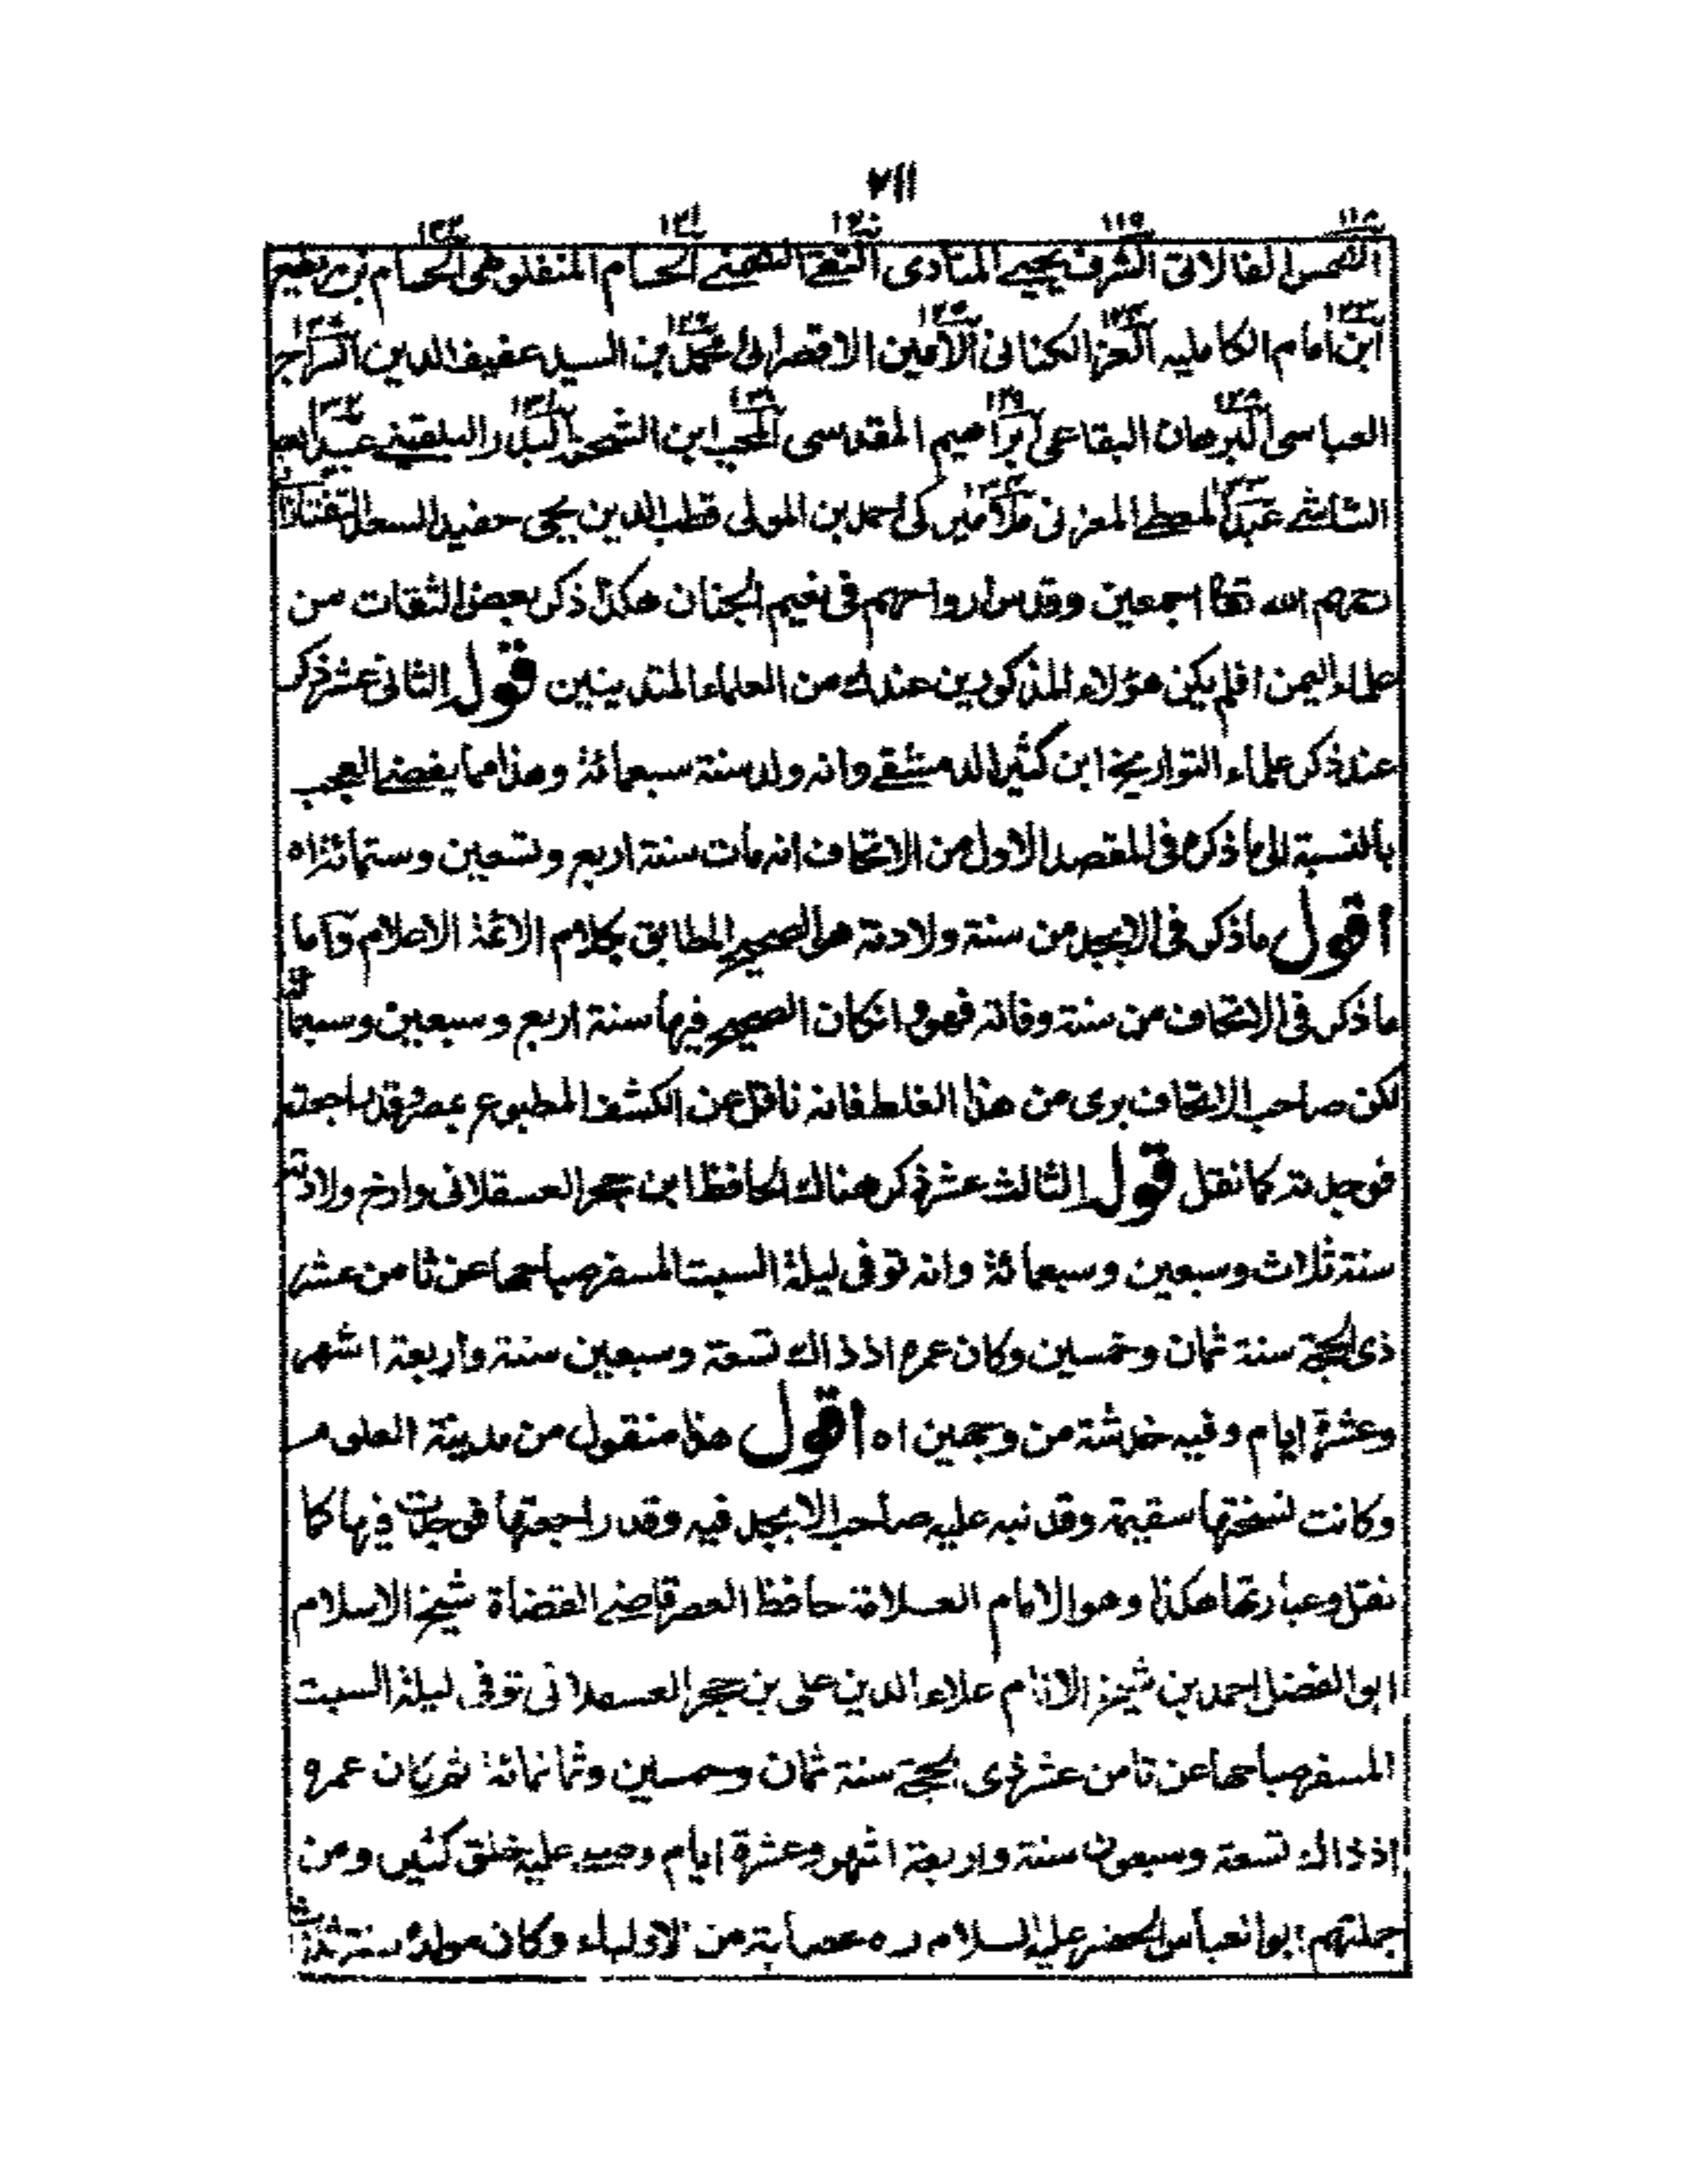 ٧١١
١١٨ ١١٩ ١٢٠ ١٢١ ١٢٢
الشمس الفالاتى الشرف يحيے المنادى التقے الحسام المنفلوطى الحسام بن
١٢٣ ١٢٤ ١٢٥ ١٢٦
ابن امام الكامليه العز الكنانى الامين الاقصرائى محمد بن السيد عفيف الدين السراج
العباسى البرهان البقاعى ابراهيم المقدسى المحب ابن الشحنة البدر البلقينے
الشاشے عبد المعطے المغربى ملا ميركى احمد بن المولى قطب الدين يحى حفيد السعد التفتازانى
رحمهم الله تعالى اجمعين وقدس ارواحهم فى نعيم الجنان هكذا ذكر بعض الثقات من
علماء اليمن افلم يكن هؤلاء المذكورين عندك من العلماء المتدينين قول الثانى عشر ذكر
عند ذكر علماء التواريخ ابن كثير الدمشقے وانه ولد سنة سبعمائة وهذا مما يفضے العجب
بالنسبة الى ما ذكره فى المقصد الاول من الاتحاف انه مات سنة اربع وتسعين وستمائة اه
اقول ما ذكر فى الابجد من سنة ولادته هو الصحيح المطابق بكلام الائمة الاعلام واما
ما ذكر فى الاتحاف من سنة وفاته فهو وان كان الصحيح فيها سنة اربع وسبعين وسبعمائة
لكن صاحب الاتحاف برى من هذا الغلط فانه ناقل عن الكشف المطبوع بمصر وقد راجعته
فوجدته كما نقل قول الثالث عشر ذكر هناك الحافظ ابن حجر العسقلانى وارخ ولادته
سنة ثلاث وسبعين وسبعمائة وانه توفى ليلة السبت المسفر صباحها عن ثامن عشر
ذى الحجة سنة ثمان وخمسين وكان عمره اذ ذاك تسعة وسبعين سنة واربعة اشهر
وعشرة ايام وفيه خدشة من وجهين اه اقول هذا منقول من مدينة العلوم
وكانت نسختها سقيمة وقد نبه عليه صاحب الابجد فيه وقد راجعتها فوجدت فيها كما
نقل وعبارتها هكذا وهو الامام العلامة حافظ العصر قاضے القضاة شيخ الاسلام
ابو الفضل احمد بن شيخ الانام علاء الدين على بن حجر العسقلانى توفى ليلة السبت
المسفر صباحها عن ثامن عشر ذى الحجة سنة ثمان وخمسين وثمانمائة ثم كان عمره
اذ ذاك تسعة وسبعون سنة واربعة اشهر وعشرة ايام وصلے عليه خلق كثير ومن
جملتهم ابو العباس الخضر عليه السلام راه عصابة من الاولياء وكان مولده سنة ثلاث